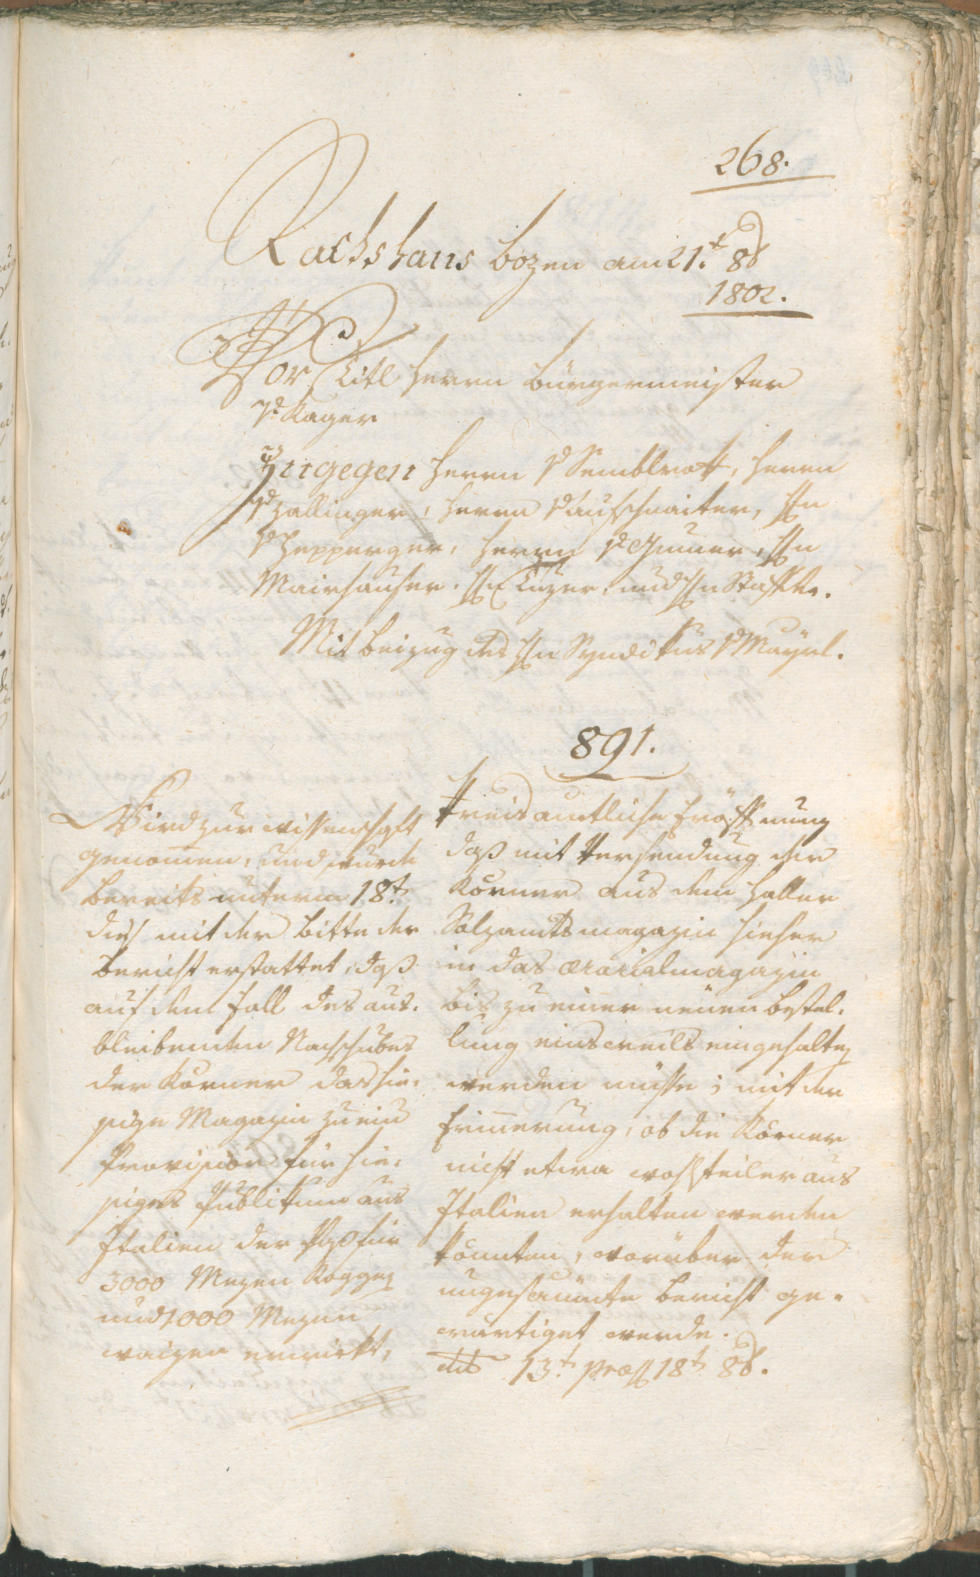 268.
Rathshaus Bozen am 21.t 8b
1802.
Vor Titl Herrn Bürgermeister
v: Kager
Zugegen Herrn v Semblrock, Herrn
v Zallinger, Herrn v Aufschnaiter, Hn
v Hepperger, Herrn v Gumer, Hn
Mairhauser. Hn Tuzer, und Hn Stafler.
Mit Beizug des Hn Syndikus v Mayrl.
891.
Wird zur Wissenschaft
genommen, und wurde
bereits unterm 18t
dies mit der Bitte der
Bericht erstattet, daß
auf dem Fall des aus-
bleibenden Nachschubes
der Körner das hie-
sige Magazin zu ein
Provision für hie-
siges Publikum aus
Italien der Paß für
3000 Mezen Roggen
und 1000 Mezen
Waizen erwirkt,
Kreisamtliche Eröffnung
daß mit Versendung der
Körner aus dem Haller
Salzamtsmagazin hieher
in das ærarialmagazin
bis zu einer neuen Bestel-
lung einsweils eingehalten
werden müsse; mit der
Erinnerung, ob die Körner
nicht etwa wohlfeiler aus
Italien erhalten werden
könnten, worüber der
ungesäumte Bericht ge-
wärtiget werde.
dto 13t. præs 18t 8b.